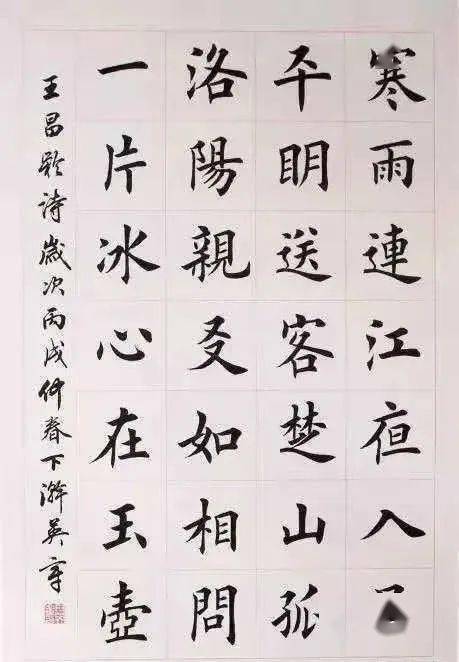 寒雨連江夜入
平明送客楚山孤
洛陽親友如相問
一片冰心在玉壺
王昌齡詩歲次丙戌仲春下澣英